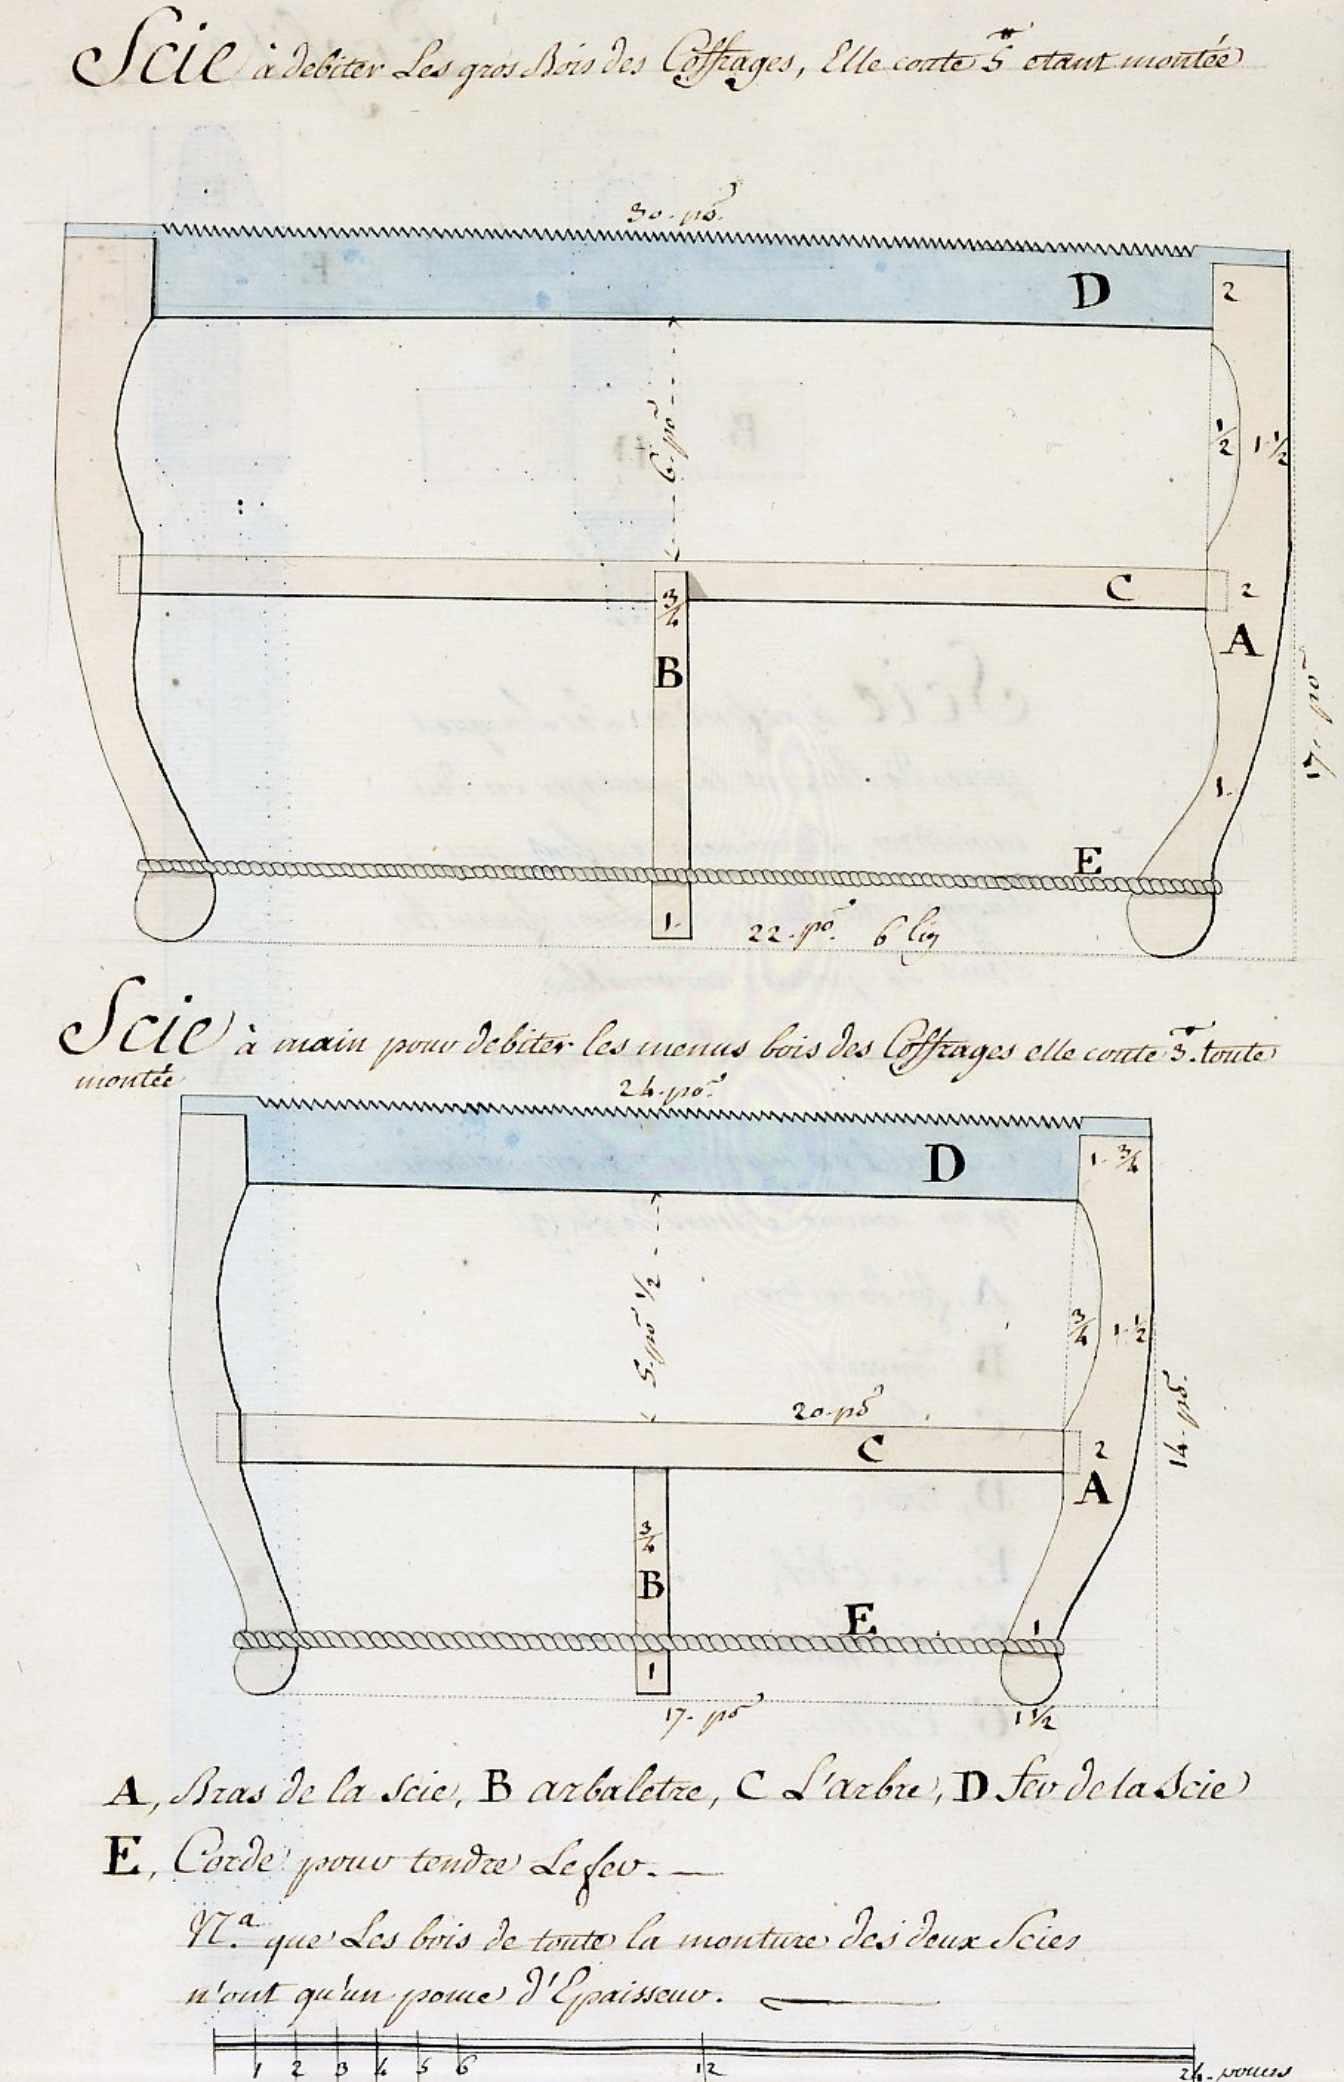 Scie à debiter Les gros Bois des Coffrages, Elle coute 5 ₶ etant montée
30. po.
D
2
6. po
1/2 1 1/2
C 2
3/4
A
B
17. po
1.
E
1.
22. po. 6 lig
Scie à main pour debiter les menus bois des Coffrages elle coute 3 ₶. toute
montée
24. po.
D
1. 3/4
5. po 1/2
3/4 1 1/2
20. po
14. po.
C 2
A
3/4
B
E 1
1
17. po
1 1/2
A, Bras de la Scie, B arbaletre, C L'arbre, D fer de la Scie
E, Corde pour tendre Le fer. —
N.a que Les bois de toute la monture des deux Scies
n'ont qu'un pouce d'Epaisseur.
1 2 3 4 5 6 12 24. pouces